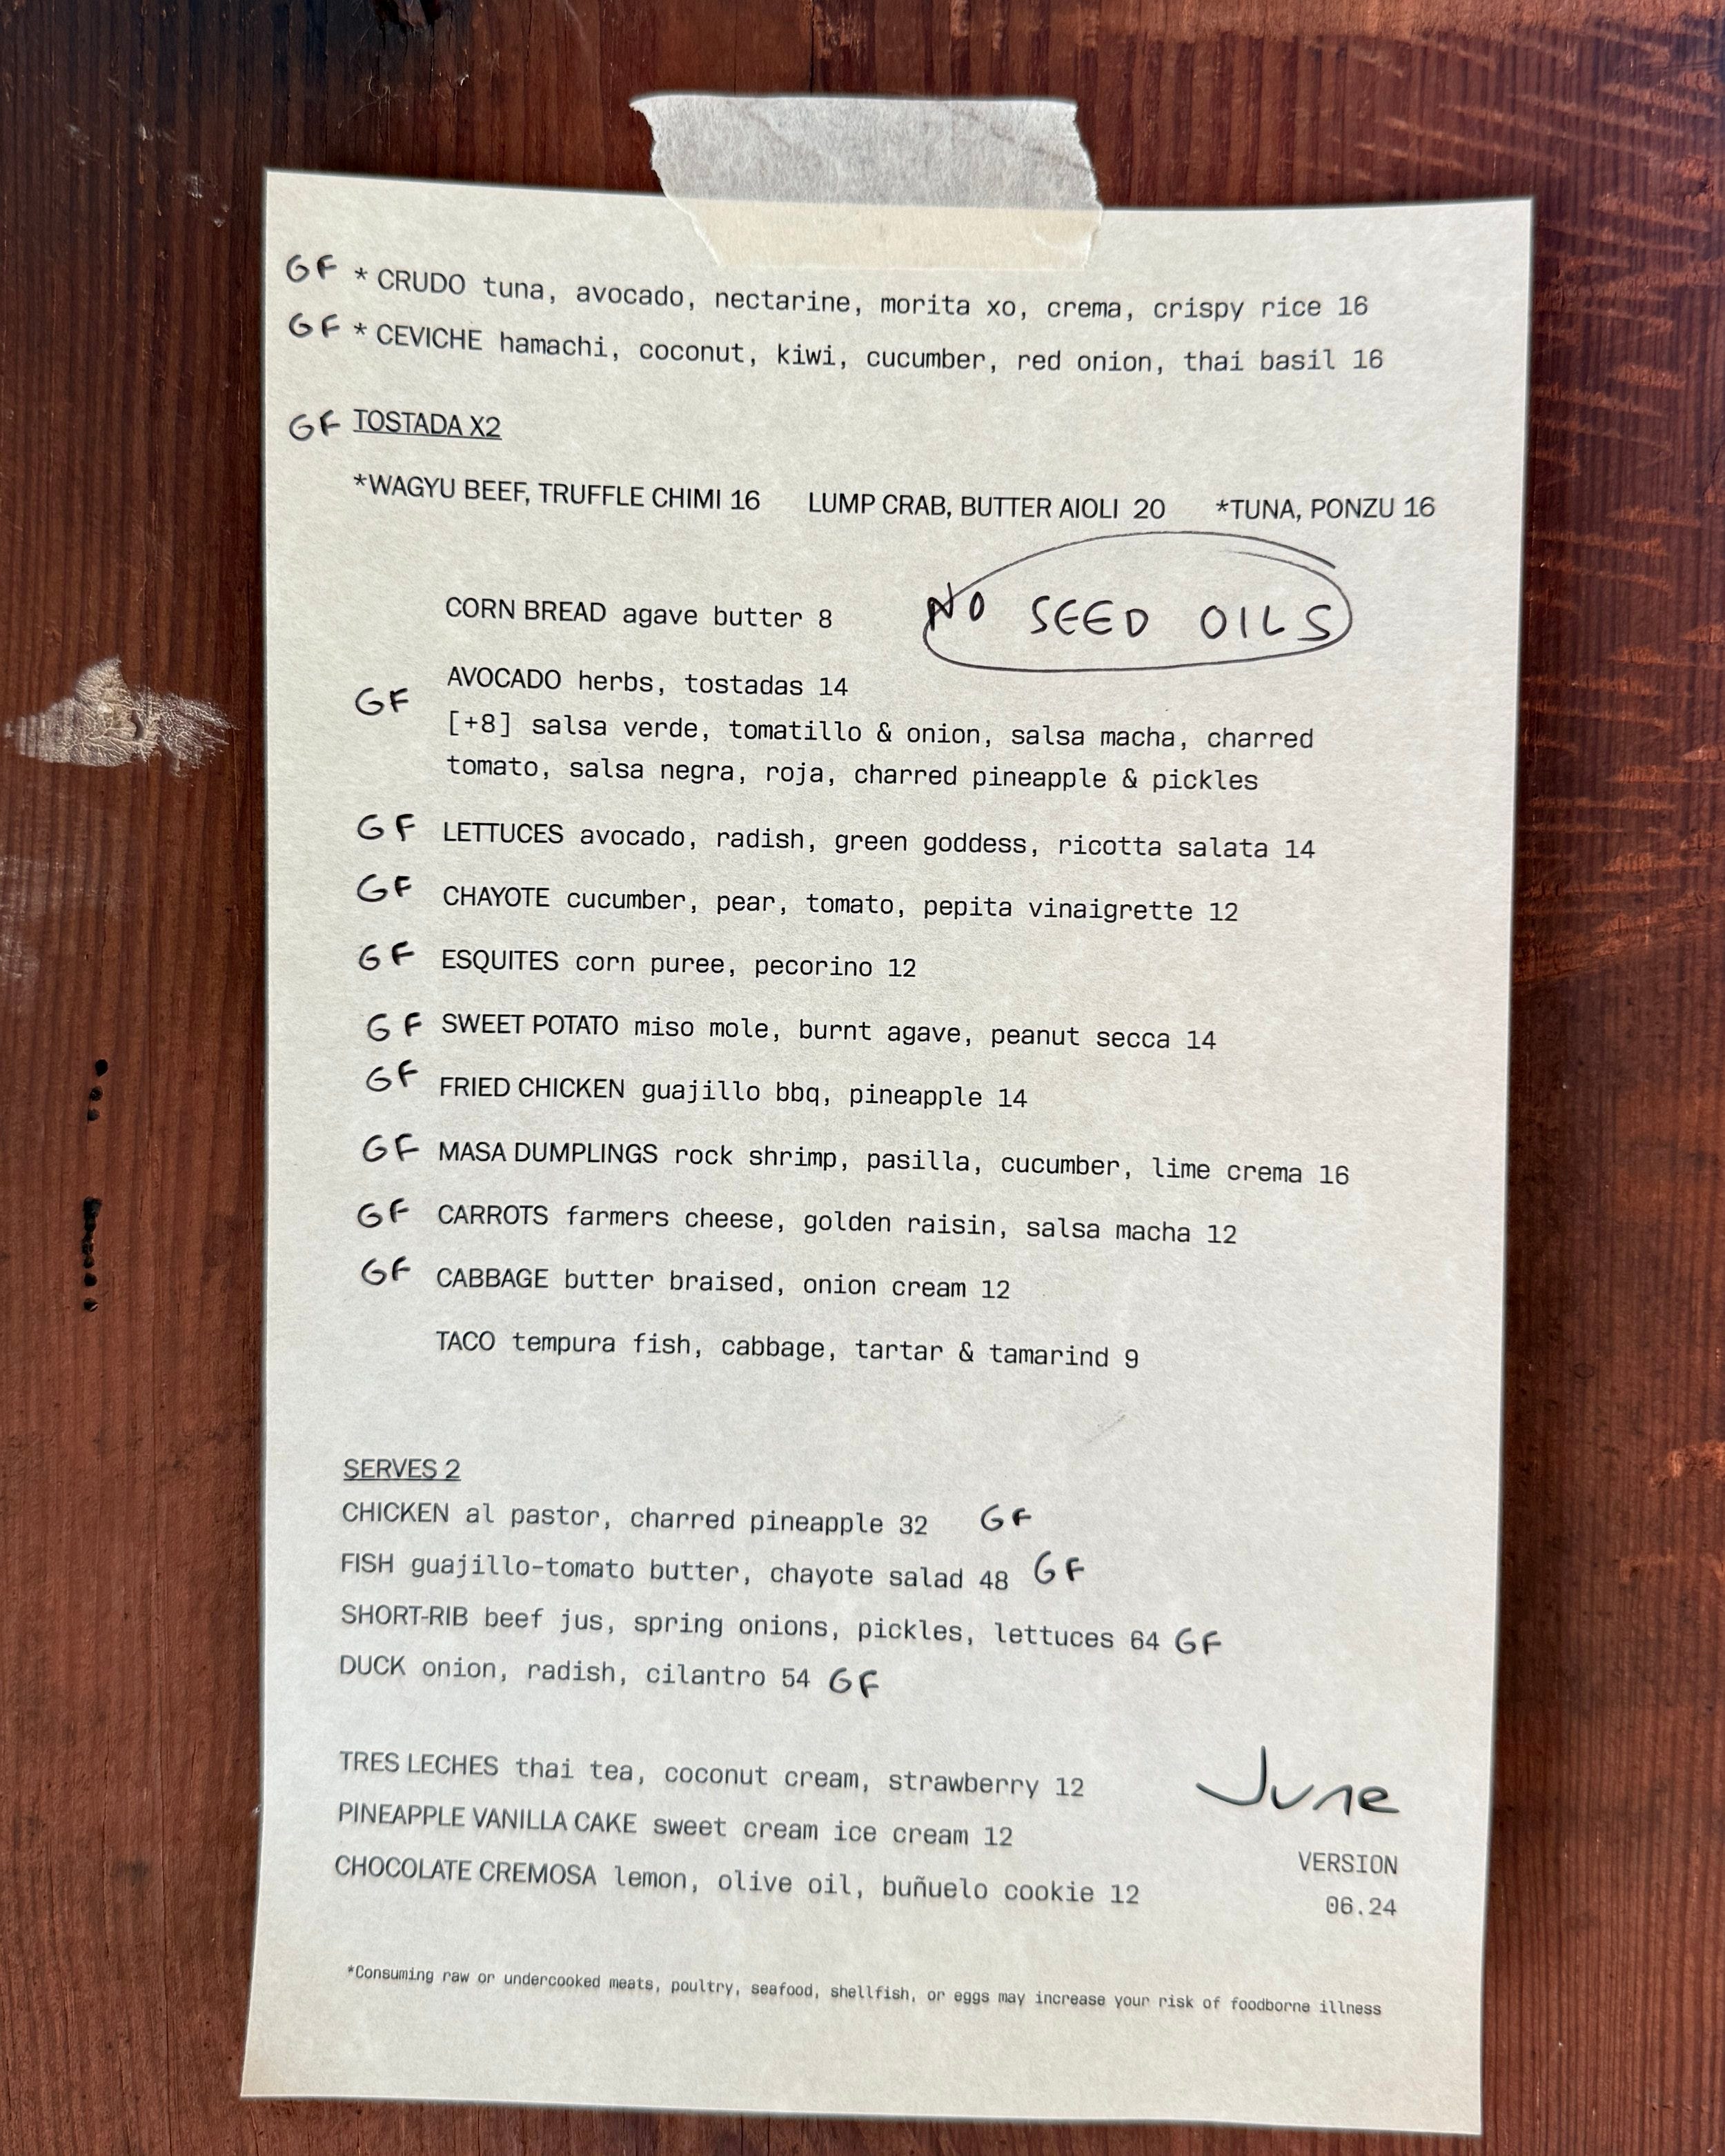 GF * CRUDO tuna, avocado, nectarine, morita xo, crema, crispy rice 16
GF * CEVICHE hamachi, coconut, kiwi, cucumber, red onion, thai basil 16
GF TOSTADA X2
*WAGYU BEEF, TRUFFLE CHIMI 16 LUMP CRAB, BUTTER AIOLI 20 *TUNA, PONZU 16
CORN BREAD agave butter 8
NO SEED OILS
AVOCADO herbs, tostadas 14
GF
[+8] salsa verde, tomatillo & onion, salsa macha, charred
tomato, salsa negra, roja, charred pineapple & pickles
GF LETTUCES avocado, radish, green goddess, ricotta salata 14
GF CHAYOTE cucumber, pear, tomato, pepita vinaigrette 12
GF ESQUITES corn puree, pecorino 12
GF SWEET POTATO miso mole, burnt agave, peanut secca 14
GF FRIED CHICKEN guajillo bbq, pineapple 14
GF MASA DUMPLINGS rock shrimp, pasilla, cucumber, lime crema 16
GF CARROTS farmers cheese, golden raisin, salsa macha 12
GF CABBAGE butter braised, onion cream 12
TACO tempura fish, cabbage, tartar & tamarind 9
SERVES 2
CHICKEN al pastor, charred pineapple 32 GF
FISH guajillo-tomato butter, chayote salad 48 GF
SHORT-RIB beef jus, spring onions, pickles, lettuces 64 GF
DUCK onion, radish, cilantro 54 GF
TRES LECHES thai tea, coconut cream, strawberry 12
PINEAPPLE VANILLA CAKE sweet cream ice cream 12
CHOCOLATE CREMOSA lemon, olive oil, buñuelo cookie 12
June
VERSION
06.24
*Consuming raw or undercooked meats, poultry, seafood, shellfish, or eggs may increase your risk of foodborne illness